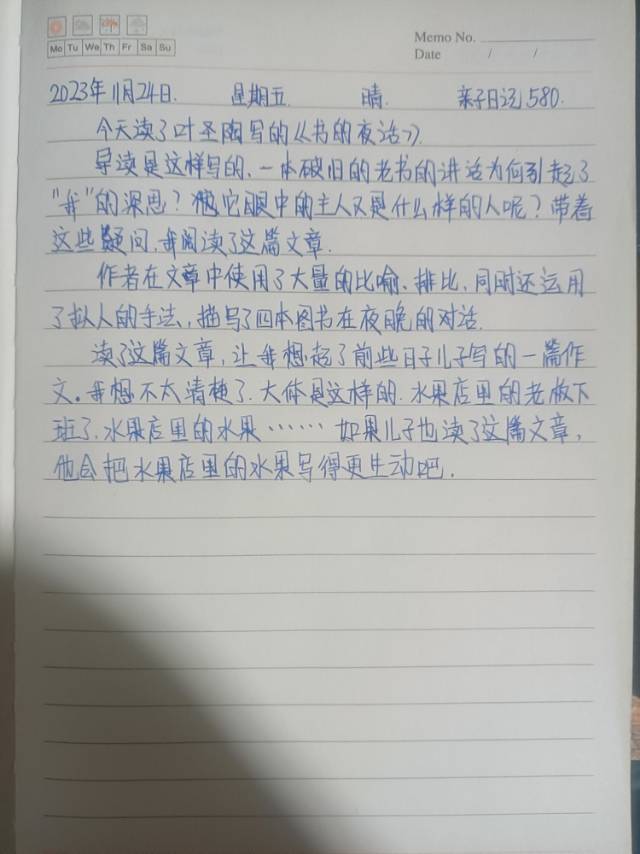 Memo No.
Mo Tu We Th Fr Sa Su
Date / /
2023年11月24日. 星期五. 晴. 亲子日记580.
今天读了叶圣陶写的《书的夜话》.
导读是这样写的,一本破旧的老书的讲话为何引起了
"我"的深思?它眼中的主人又是什么样的人呢?带着
这些疑问,我阅读了这篇文章.
作者在文章中使用了大量的比喻、排比,同时还运用
了拟人的手法,描写了四本图书在夜晚的对话.
读了这篇文章,让我想起了前些日子儿子写的一篇作
文。我想不太清楚了.大体是这样的.水果店里的老板下
班了.水果店里的水果……如果儿子也读了这篇文章,
他会把水果店里的水果写得更生动吧.